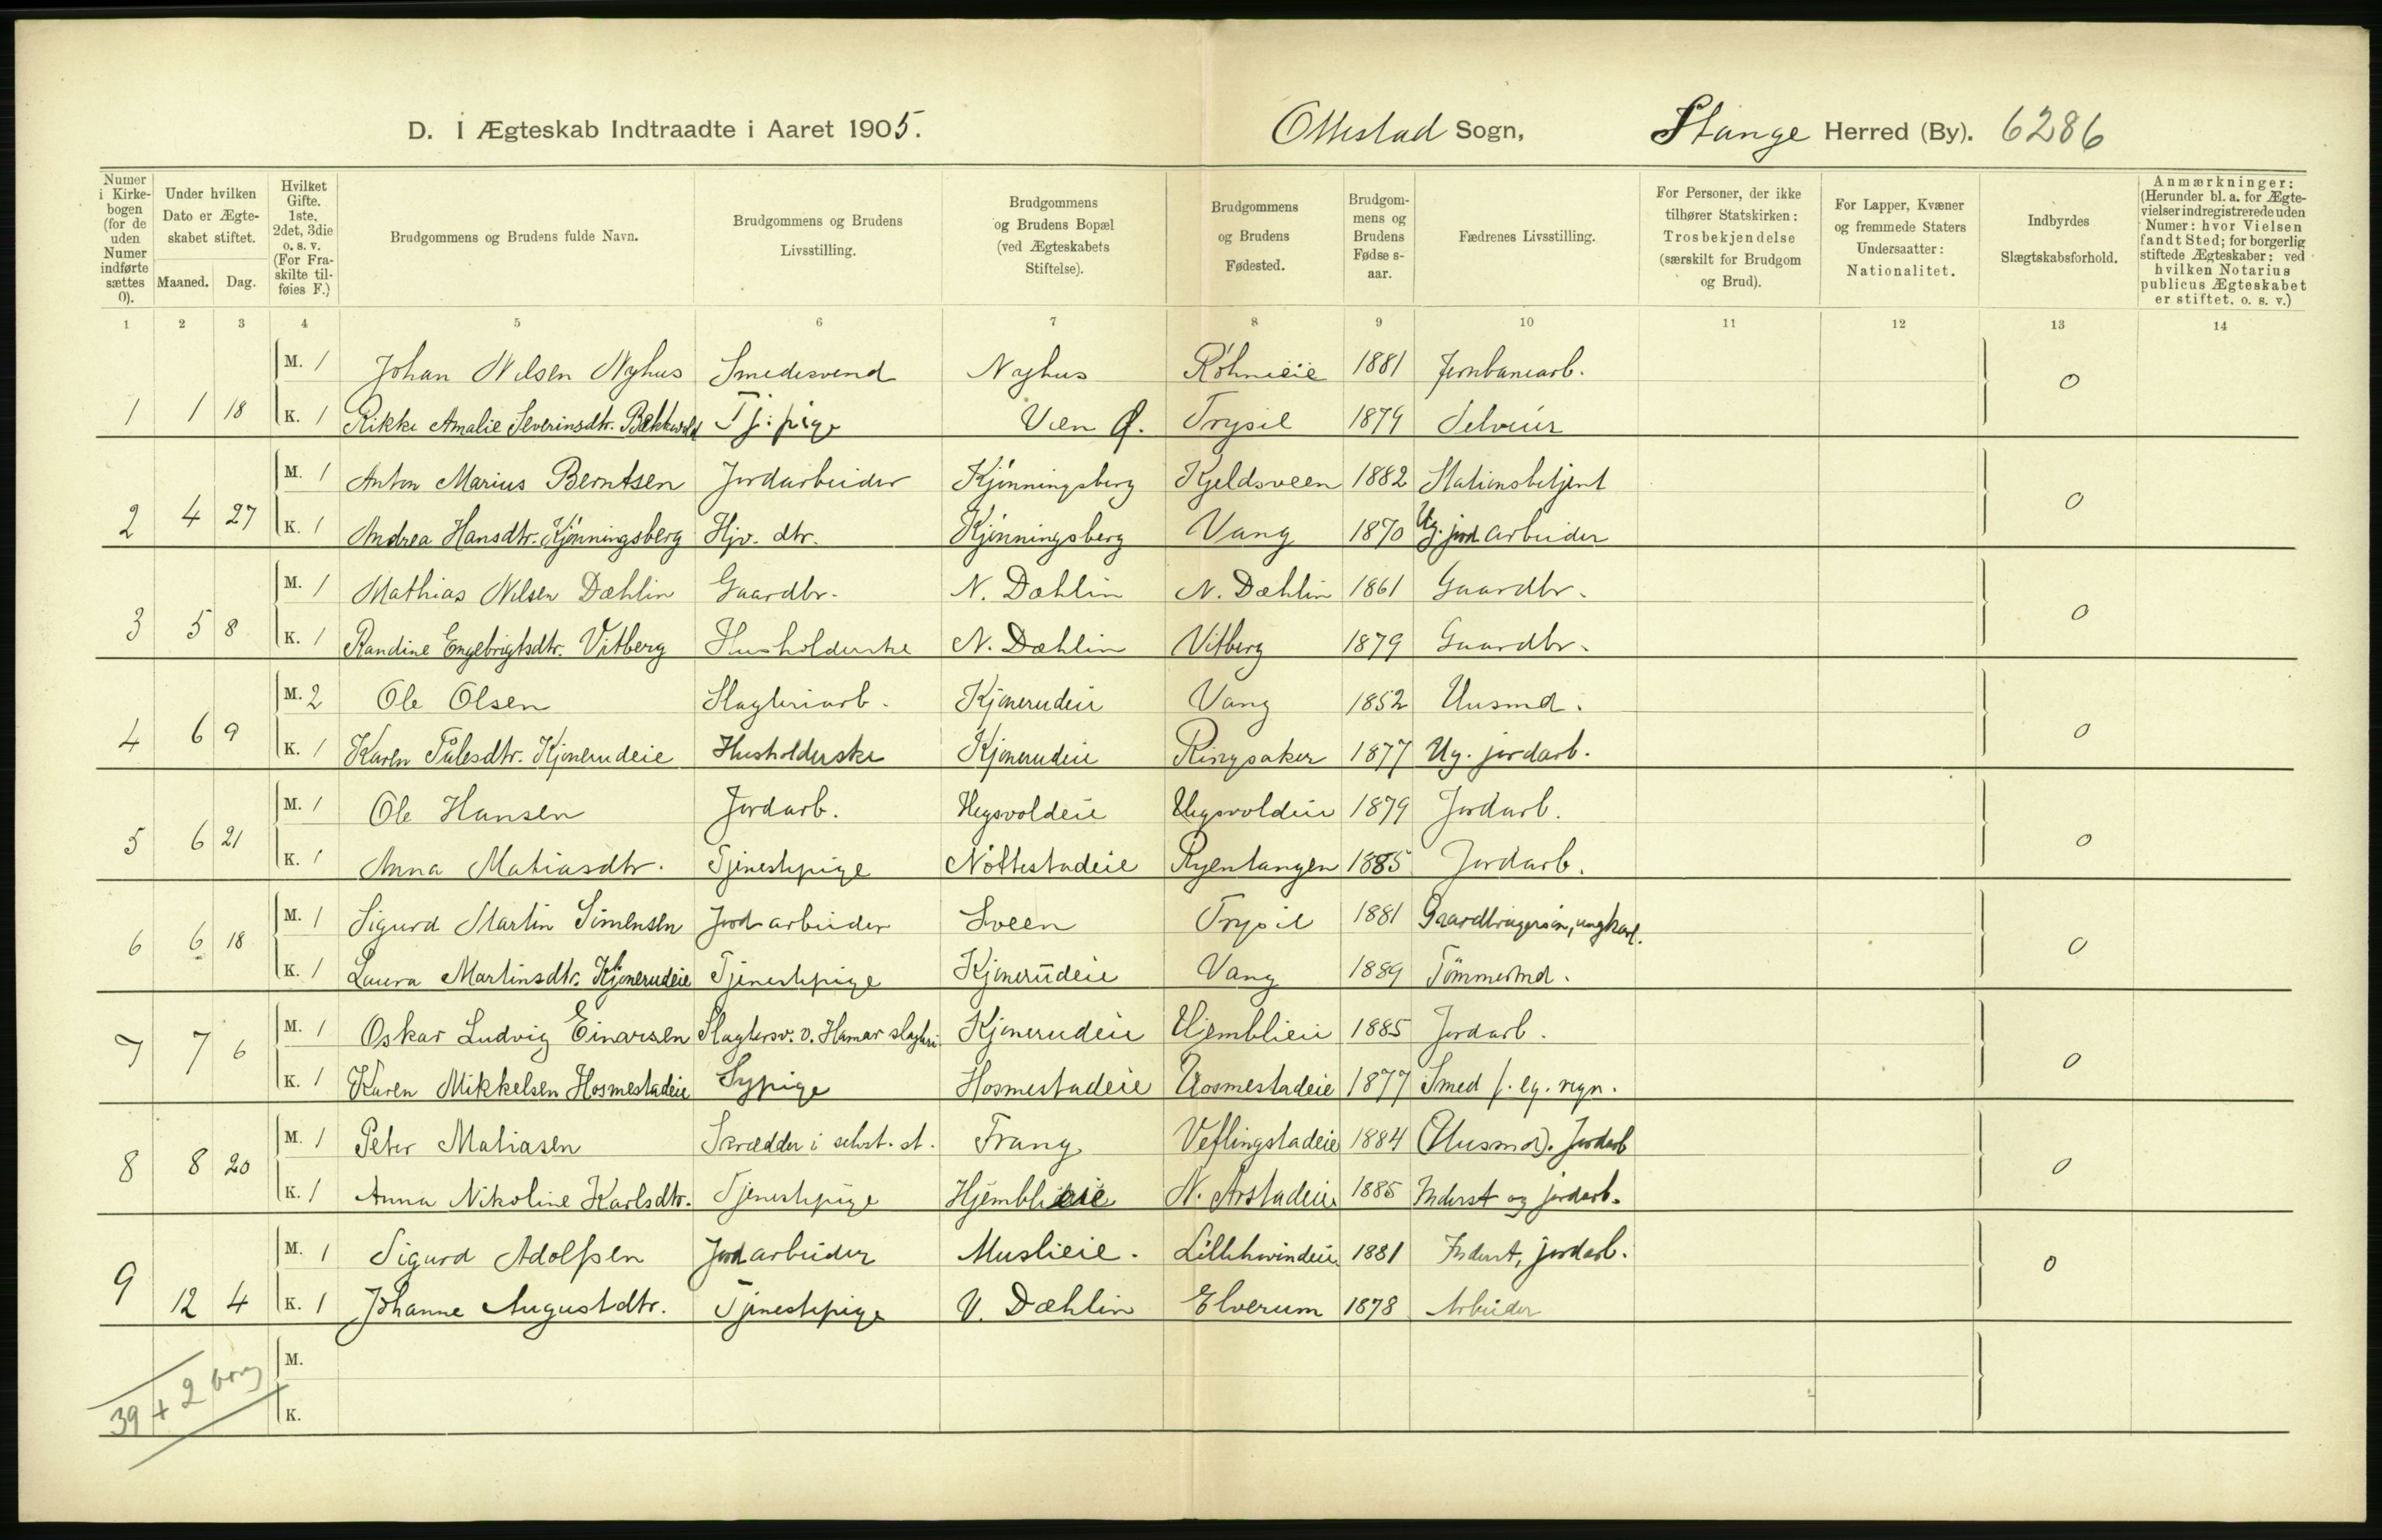 D. I Ægteskab Indtraadte i Aaret 1905. Ottestad Sogn, Stange Herred (By). 6286
Numer i Kirkebogen (for de uden Numer indførte sættes 0).
Under hvilken Dato er Ægteskabet stiftet.
Maaned. Dag.
Hvilket Gifte. 1ste, 2det, 3die o. s. v. (For Fraskilte tilføies F.)
Brudgommens og Brudens fulde Navn.
Brudgommens og Brudens Livsstilling.
Brudgommens og Brudens Bopæl (ved Ægteskabets Stiftelse).
Brudgommens og Brudens Fødested.
Brudgommens og Brudens Fødse s-aar.
Fædrenes Livsstilling.
For Personer, der ikke tilhører Statskirken: Trosbekjendelse (særskilt for Brudgom og Brud).
For Lapper, Kvæner og fremmede Staters Undersaatter: Nationalitet.
Indbyrdes Slægtskabsforhold.
Anmærkninger: (Herunder bl. a. for Ægtevielser indregistrerede uden Numer: hvor Vielsen fandt Sted; for borgerlig stiftede Ægteskaber: ved hvilken Notarius publicus Ægteskabet er stiftet. o. s. v.)
1 2 3 4 5 6 7 8 9 10 11 12 13 14
M. 1 Johan Nilsen Nyhus Smedesvend Nyhus 1881 Jernbanearb. 0
1 1 18 K. 1 Rikke Amalie Severinsdtr. Bækkevold Tj: pige Vien Ø. Trysil 1879 Selveier
M. 1 Anton Marius Berntsen Jordarbeider Kjønningsberg Kjeldsveen 1882 Stationsbetjent 0
2 4 27 K. 1 Andrea Hansdtr. Kjønningsberg Hjv. dtr. Kjønningsberg Vang 1870 Ug. jord arbeider
M. 1 Mathias Nilsen Dæhlin Gaardbr. N. Dæhlin N. Dæhlin 1861 Gaardbr. 0
3 5 8 K. 1 Randine Engebrigtsdtr. Vitberg Husholderske N. Dæhlin Vitberg 1879 Gaardbr.
M. 2 Ole Olsen Slagteriarb. Kjonerudeie Vang 1852 Husmd. 0
4 6 9 K. 1 Karen Pålesdtr. Kjonerudeie Husholderske Kjonerudeie Ringsaker 1877 Ug. jordarb.
M. 1 Ole Hansen Jordarb. Hegsvoldeie Hegsvoldeie 1879 Jordarb. 0
5 6 21 K. 1 Anna Matiasdtr. Tjenestepige Nøttestadeie Ryentangen 1885 Jordarb.
M. 1 Sigurd Martin Simensen Jordarbeider Sveen Trysil 1881 Gaardbrugersøn, ungkarl. 0
6 6 18 K. 1 Laura Martinsdtr. Kjonerudeie Tjenestepige Kjonerudeie Vang 1889 Tømmermd.
M. 1 Oskar Ludvig Einarsen Slagtersv. v. Hamar slagteri Kjonerudeie Hjemblieie 1885 Jordarb. 0
7 7 6 K. 1 Karen Mikkelsen Hosmestadeie Sypige Hosmestadeie Hosmestadeie 1877 Smed f. eg. regn.
M. 1 Peter Matiasen Skrædder i selvst. st. Frang Veflingstadeie 1884 (Husmd). Jordarb 0
8 8 20 K. 1 Anna Nikoline Karlsdtr. Tjenestepige Hjemblieie N. Arstadeie 1885 Inderst og jordarb.
M. 1 Sigurd Adolfsen Jordarbeider Muslieie. Lillehvindeie 1881 Inderst, jordarb. 0
9 12 4 K. 1 Johanne Augustdtr. Tjenestepige V. Dæhlin Elverum 1878 Arbeider
M.
K.
39 + 2 borg